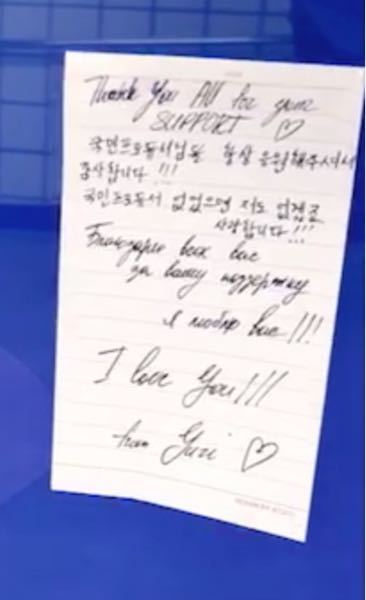 Thank You All for your
SUPPORT ♡
국민프로듀서님들 항상 응원해주셔서
감사합니다 !!!
국민프로듀서 없었으면 저도 없겠고
사랑합니다 !!!
Благодарю всех вас
за вашу поддержку
я люблю вас !!!
I love You!!!
from Yuri ♡